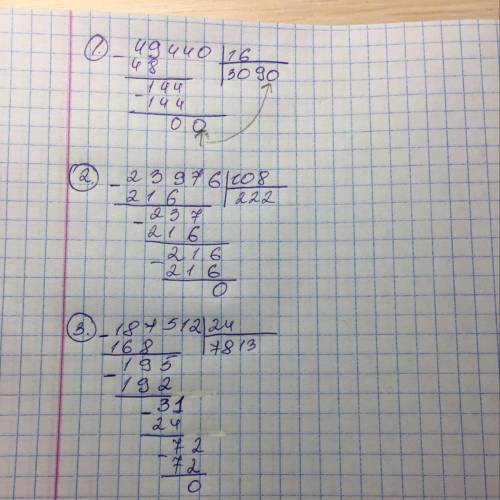 1. - 49440 | 16
48 | 3090
- 144
144
00
2. - 23976 | 108
216 | 222
- 237
216
- 216
216
0
3. - 187512 | 24
168 | 7813
- 195
192
- 31
24
- 72
72
0